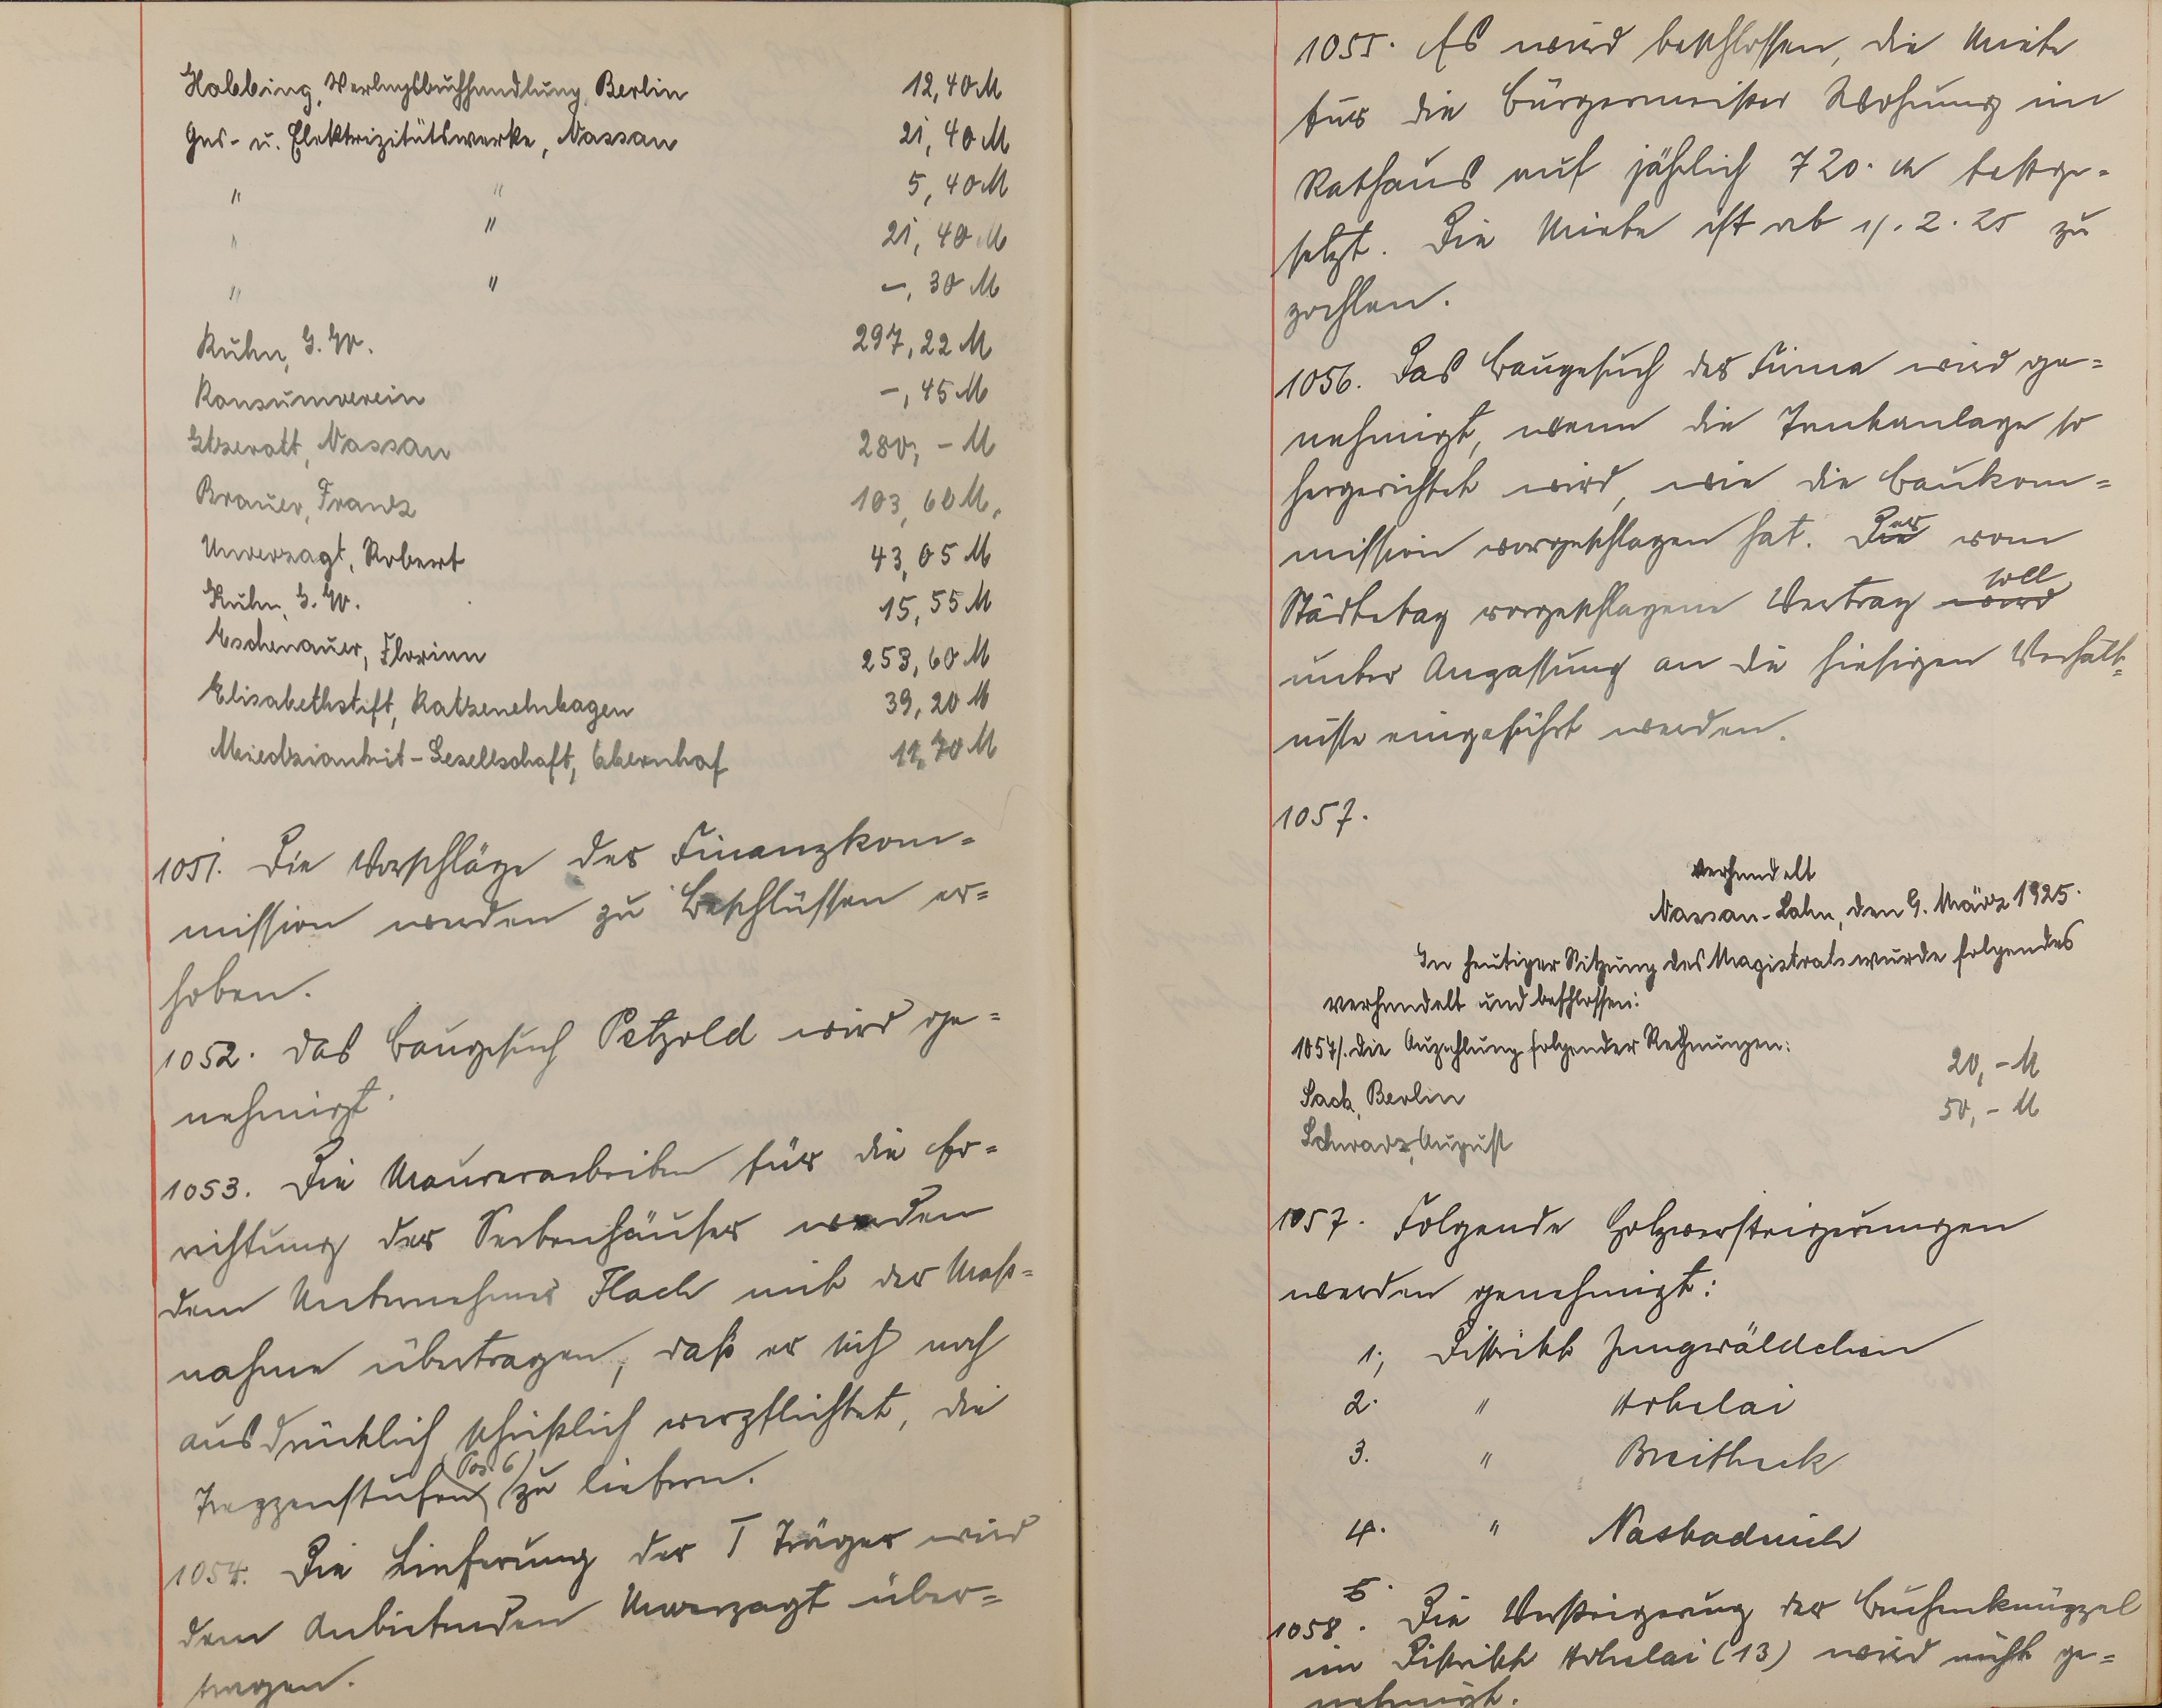 Hobbing, Verlagsbuchhandlung, Berlin 12,40 M
Gas- u. Elektrizitätswerke, Nassau 21,40 M
" " 5,40 M
" " 21,40 M
" " -,30 M
Kuhn, G. W. 297,22 M
Konsumverein -,45 M
Nassau 280,- M
Brauer, Franz 103,60 M.
Unverzagt, Robert 43,05 M
Kuhn, G. W. 15,55 M
Eschenauer, Florian 253,60 M
Elisabethstift, Katzenelnbogen 39,20 M
Miedziankit-Gesellschaft, Obernhof 11,70 M
1051. Die Vorschläge der Finanzkom=
mission werden zu Beschlüssen er=
hoben.
1052. Das Baugesuch Petzold wird ge=
nehmigt.
1053. Die Maurerarbeiten für die Er=
richtung der Siebenhäuser werden
dem Unternehmer Flach mit der Maß=
nahme übertragen, daß er sich noch
ausdrücklich schriftlich verpflichtet, die
Treppenstufen (Pos. 6) zu liefern.
1054. Die Lieferung der T Träger wird
dem Anbietenden Unverzagt über=
tragen.
1055. Es wird beschlossen, die Miete
für die Bürgermeister Wohnung im
Rathaus auf jährlich 720. M festge=
setzt. Die Miete ist ab 1/. 2. 25 zu
zahlen.
1056. Das Baugesuch der Firma wird ge=
nehmigt, wenn die Tankanlage so
hergerichtet wird, wie die Baukom=
mission vorgeschlagen hat. Der vom
Städtetag vorgeschlagene Vertrag soll
unter Anpassung an die hiesigen Verhält=
nisse eingeführt werden.
1057.
Verhandelt
Nassau-Lahn, den 9. März 1925.
In heutiger Sitzung des Magistrats wurde folgendes
verhandelt und beschlossen:
1057/. Die Auszahlung folgender Rechnungen:
Sack, Berlin 20,- M
Schwarz, August 50,- M
1057. Folgende Holzversteigerungen
werden genehmigt:
1., Distrikt Jungwäldchen
2. " Arbelai
3. " Breitheck
4. "
5.
1058. Die Versteigerung der Buchenknüppel
im Distrikt Arbelai (13) wird nicht ge=
nehmigt.